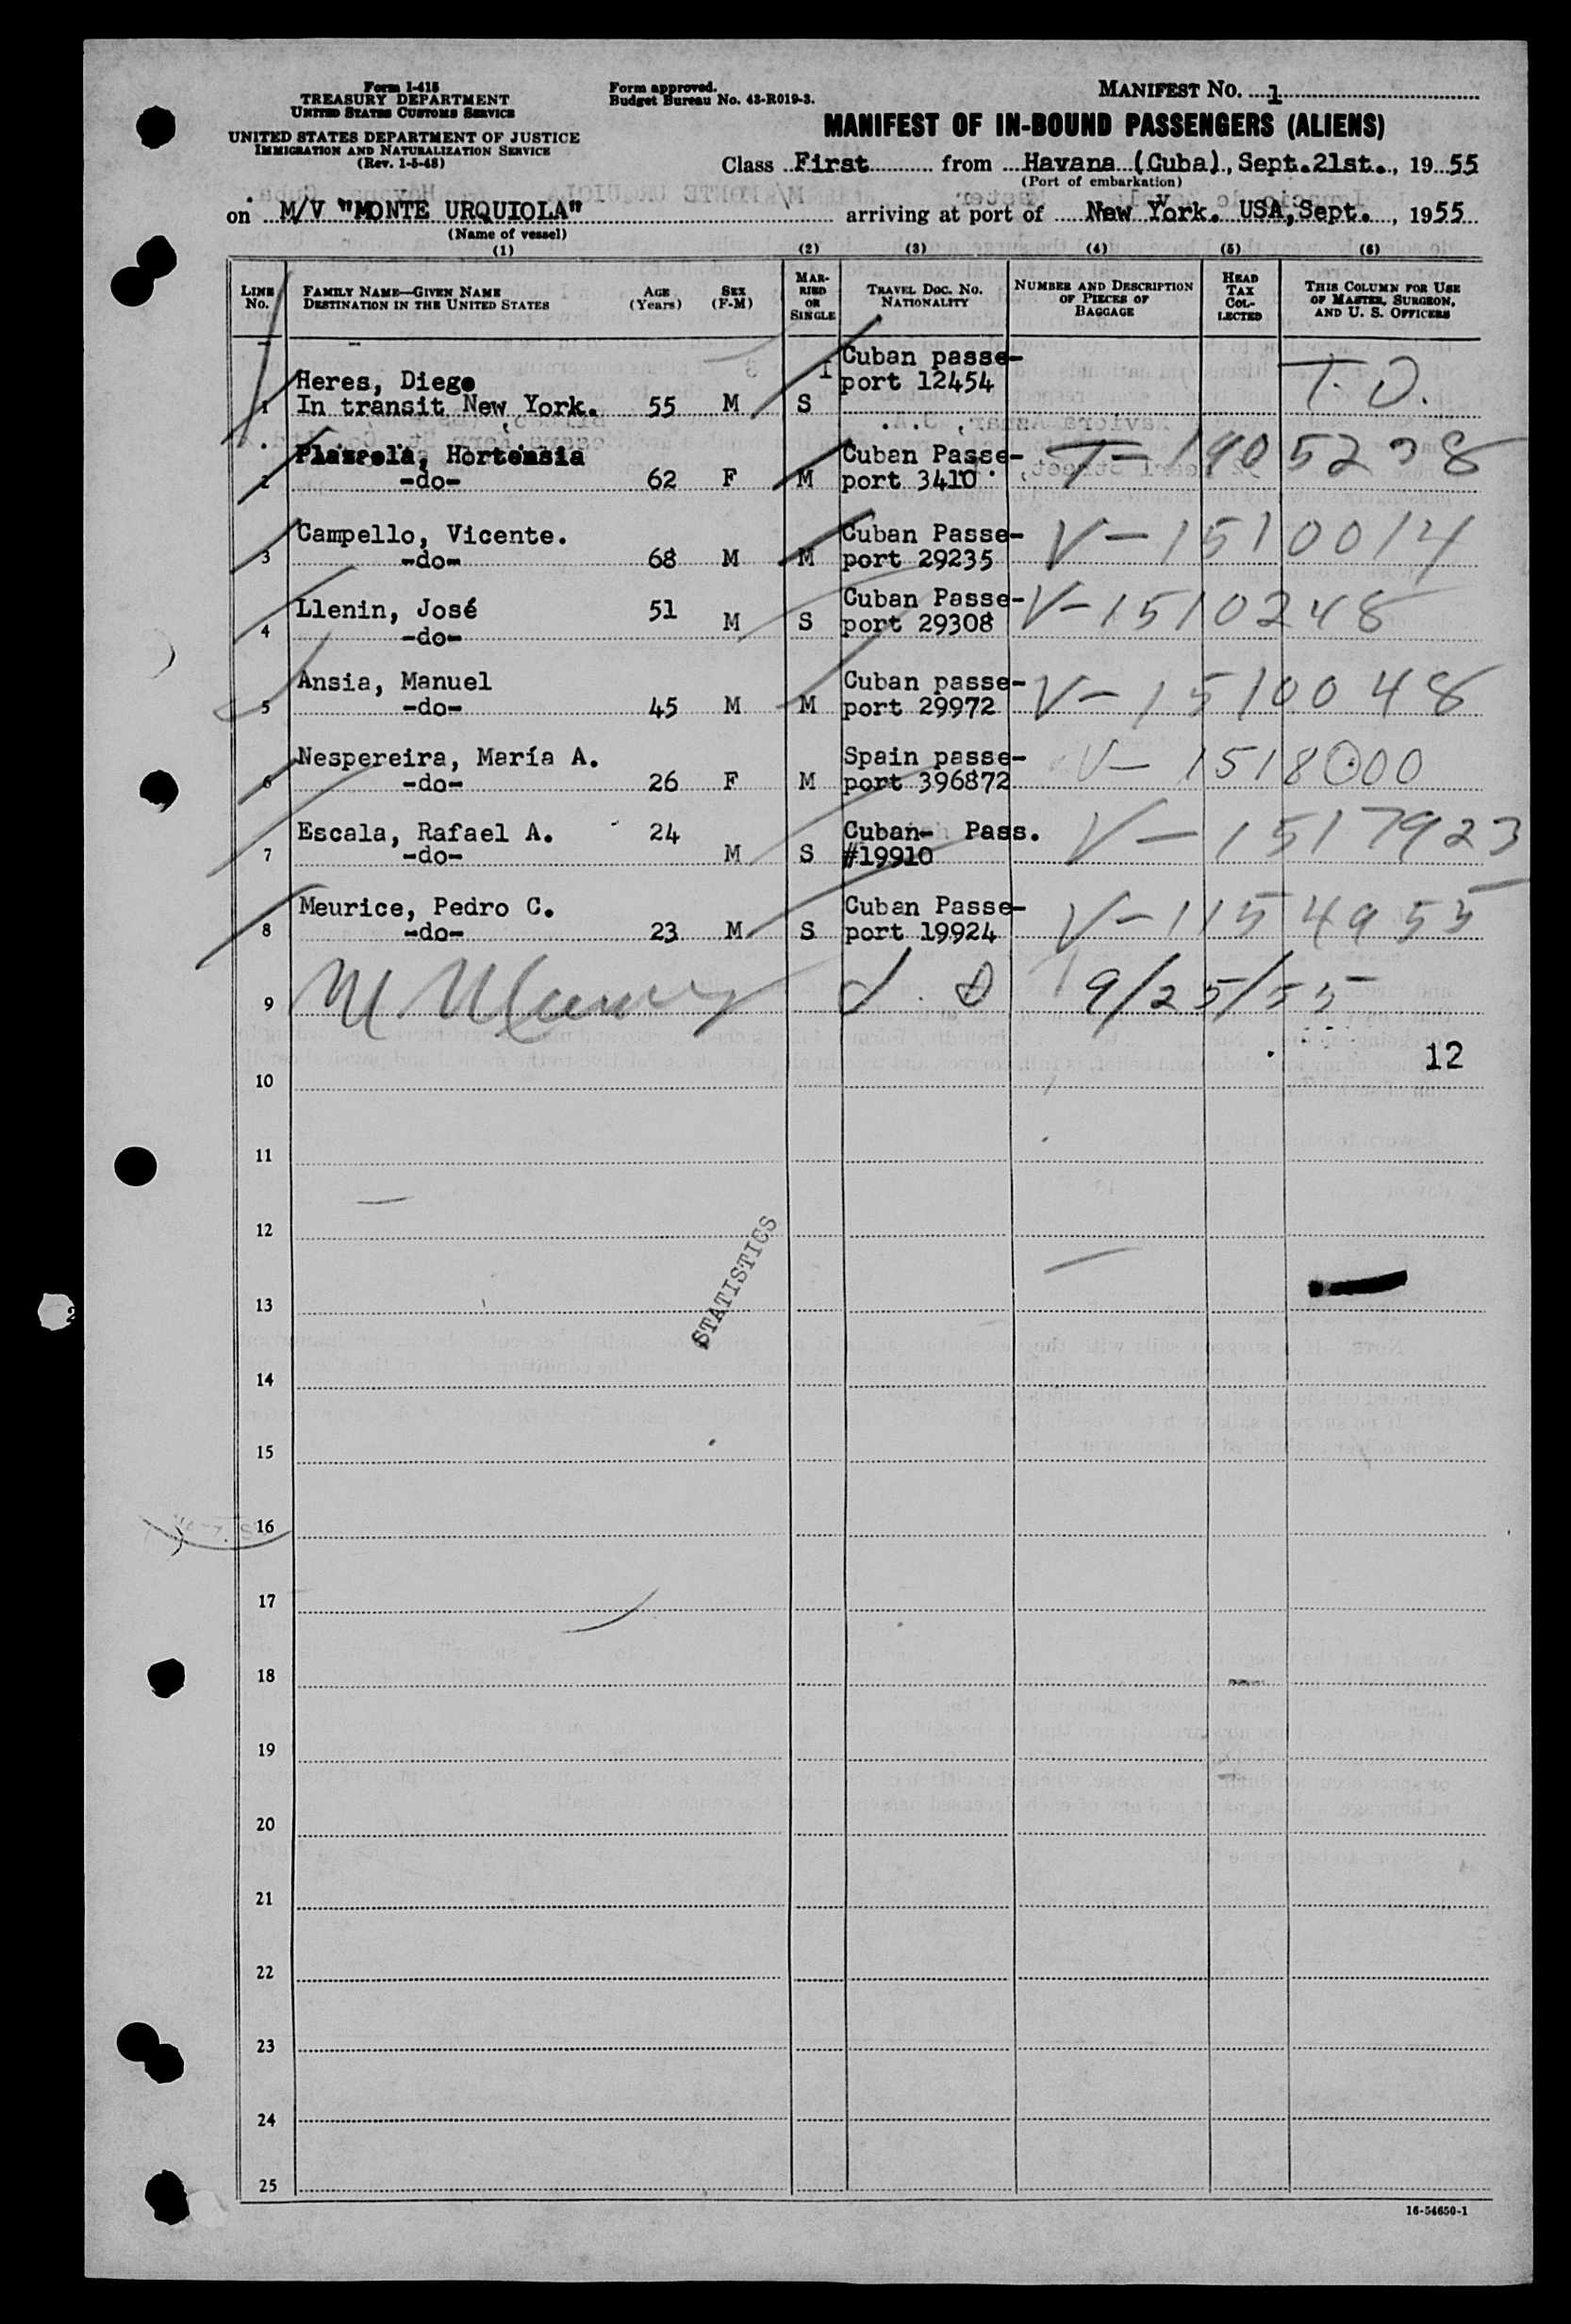 Form I-415
TREASURY DEPARTMENT
UNITED STATES CUSTOMS SERVICE
UNITED STATES DEPARTMENT OF JUSTICE
IMMIGRATION AND NATURALIZATION SERVICE
(Rev. 1-5-48)
Form approved.
Budget Bureau No. 43-R019-3.
MANIFEST No. 1
MANIFEST OF IN-BOUND PASSENGERS (ALIENS)
Class First from Havana (Cuba), Sept.21st., 1955
(Port of embarkation)
on M/V "MONTE URQUIOLA" arriving at port of New York. USA, Sept., 1955
(Name of vessel)
(1) (2) (3) (4) (5) (6)
LINE No.
FAMILY NAME—GIVEN NAME
DESTINATION IN THE UNITED STATES
AGE (Years)
SEX (F-M)
MARRIED OR SINGLE
TRAVEL DOC. NO. NATIONALITY
NUMBER AND DESCRIPTION OF PIECES OF BAGGAGE
HEAD TAX COLLECTED
THIS COLUMN FOR USE OF MASTER, SURGEON, AND U. S. OFFICERS
Heres, Diego Cuban passe-
1 In transit New York. 55 M S port 12454 T.D.
Hortensia Cuban Passe-
2 -do- 62 F M port 3410 T-1905238
Campello, Vicente. Cuban Passe-
3 -do- 68 M M port 29235 V-1510014
Llenin, José 51 Cuban Passe-
4 -do- M S port 29308 V-1510248
Ansia, Manuel Cuban passe-
5 -do- 45 M M port 29972 V-1510048
Nespereira, María A. Spain passe-
6 -do- 26 F M port 396872 V-1518000
Escala, Rafael A. 24 Cuban- Pass.
7 -do- M S #19910 V-1517923
Meurice, Pedro C. Cuban Passe-
8 -do- 23 M S port 19924 V-1154955
9 9/25/55
12
10
11
12
STATISTICS
13
14
15
16
17
18
19
20
21
22
23
24
25
16-54650-1